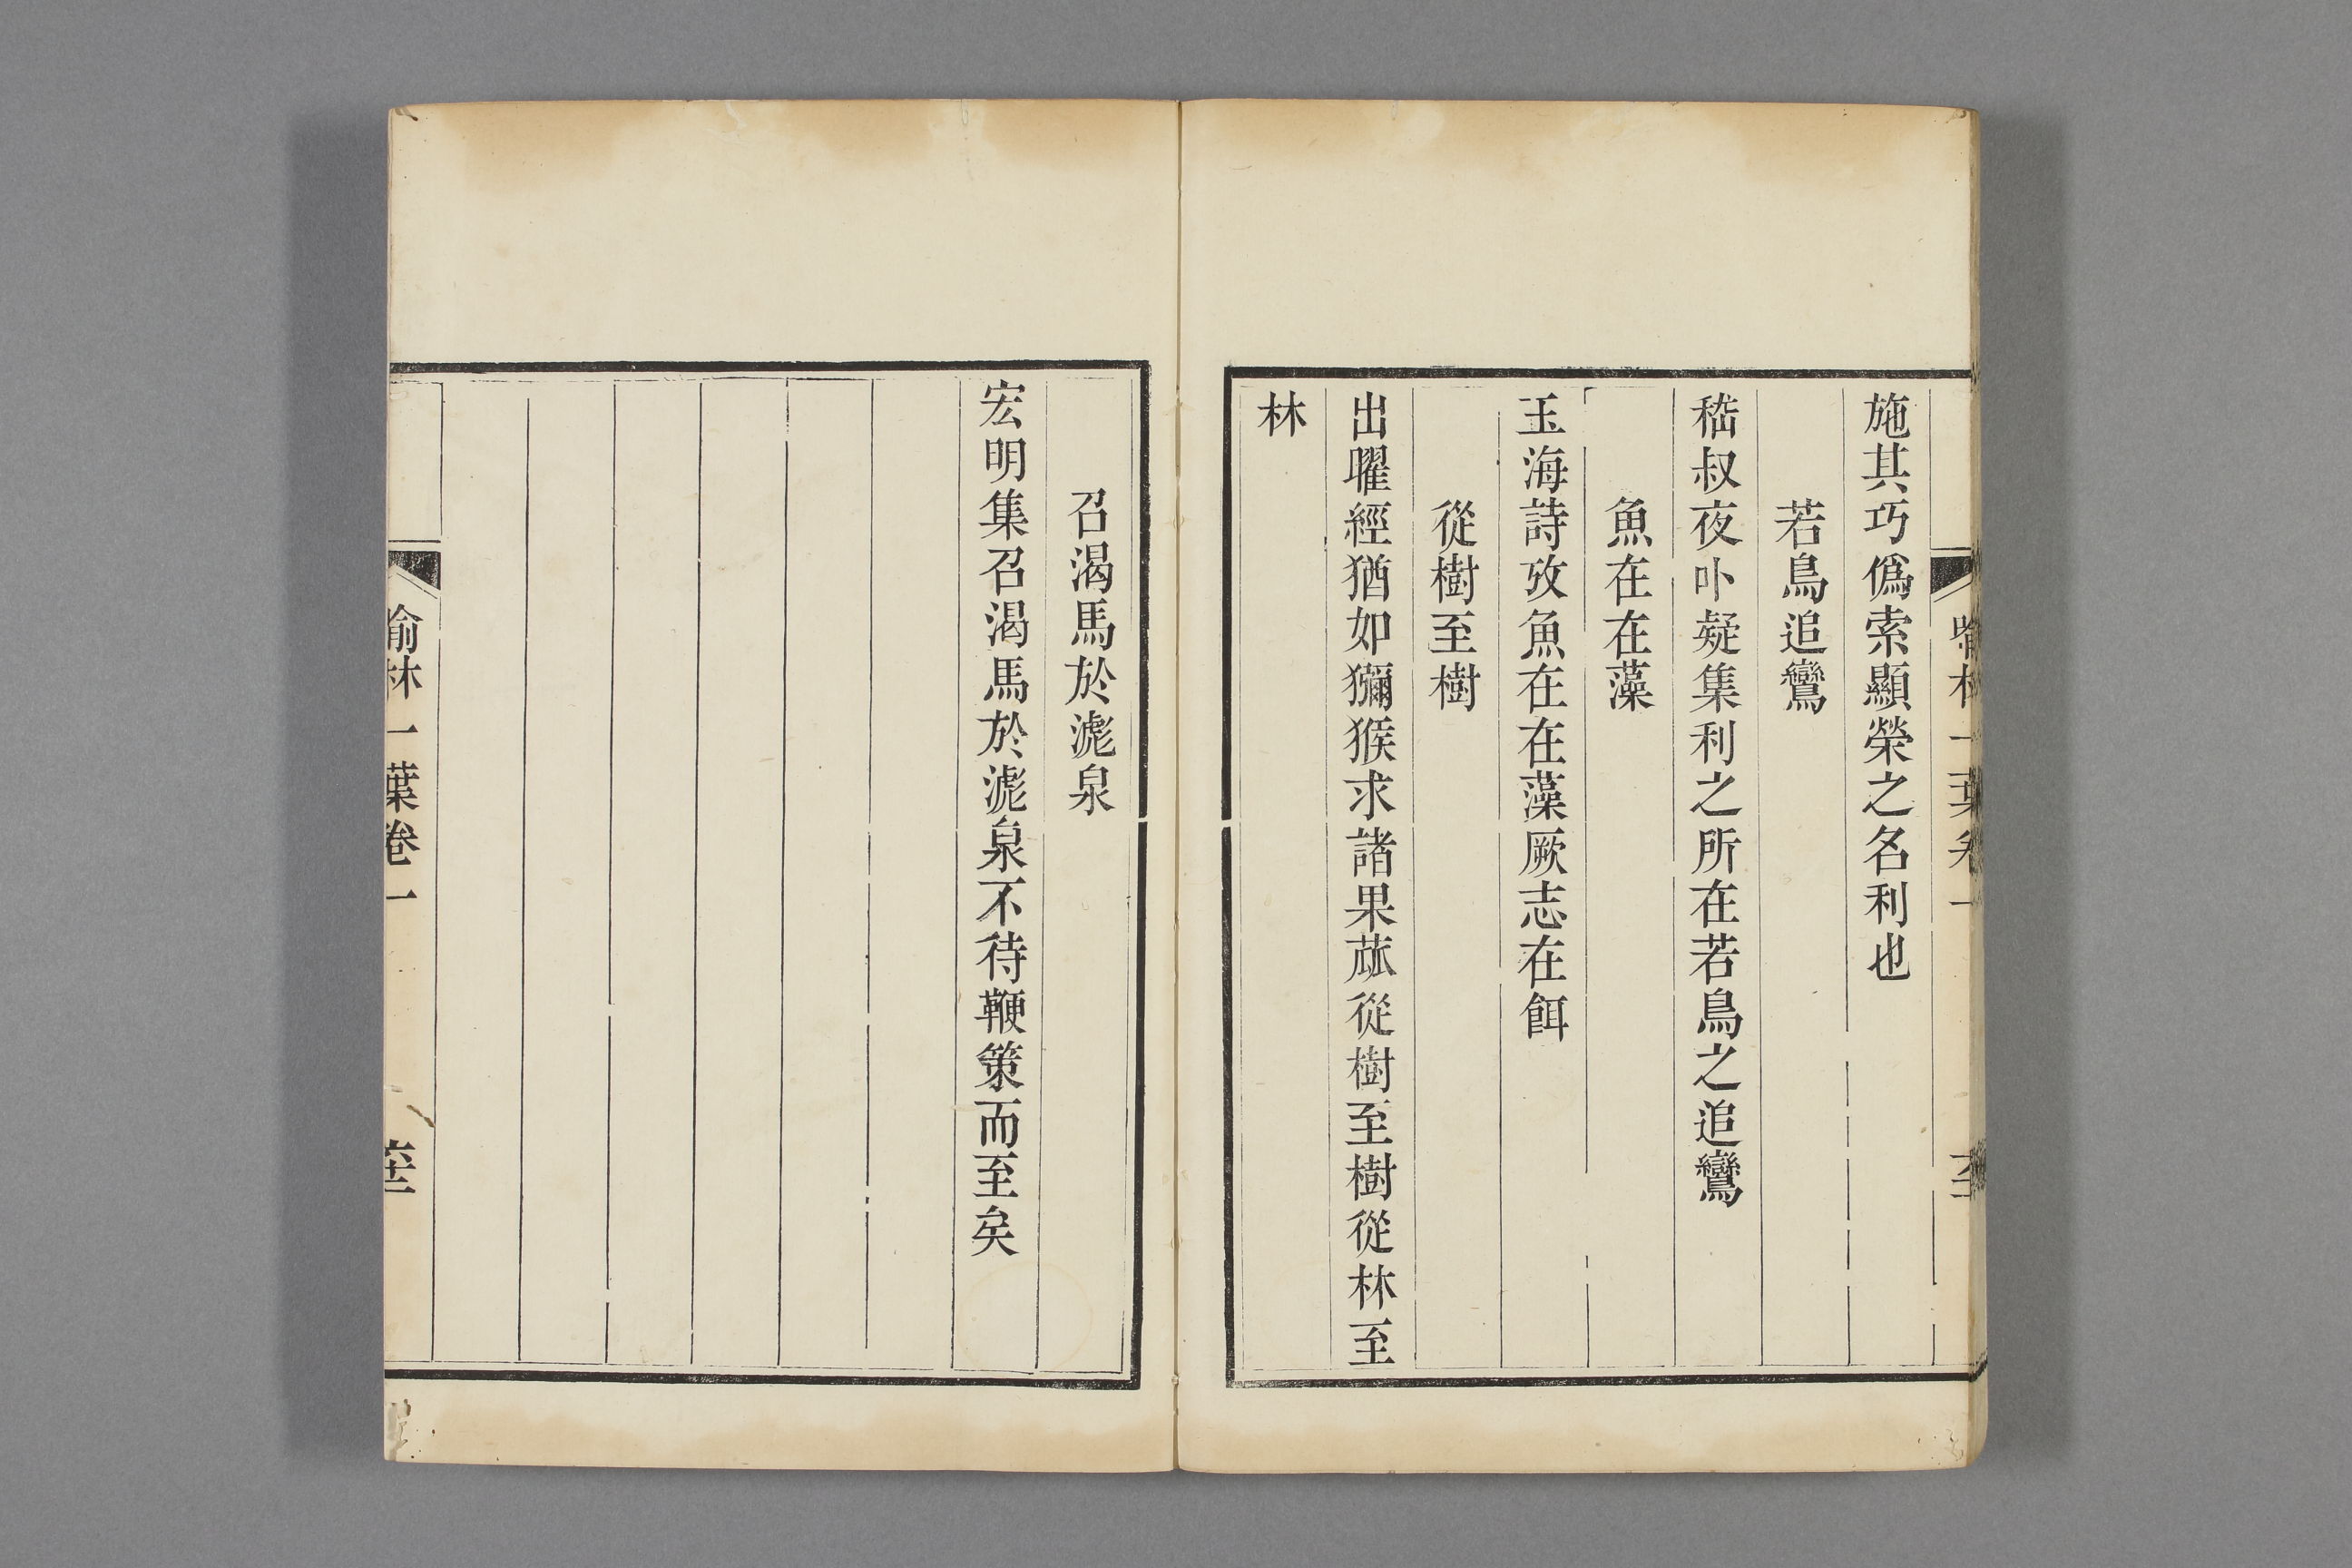 施其巧僞索顯榮之名利也
若鳥追鸞
嵇叔夜卟疑集利之所在若鳥之追鸞
魚在在藻
玉海詩攷魚在在藻厥志在餌
從樹至樹
出曜經猶如獼猴求諸果蓏從樹至樹從林至
林
召渴馬於滮泉
宏明集召渴馬於滮泉不待鞭策而至矣
喻林一葉卷一